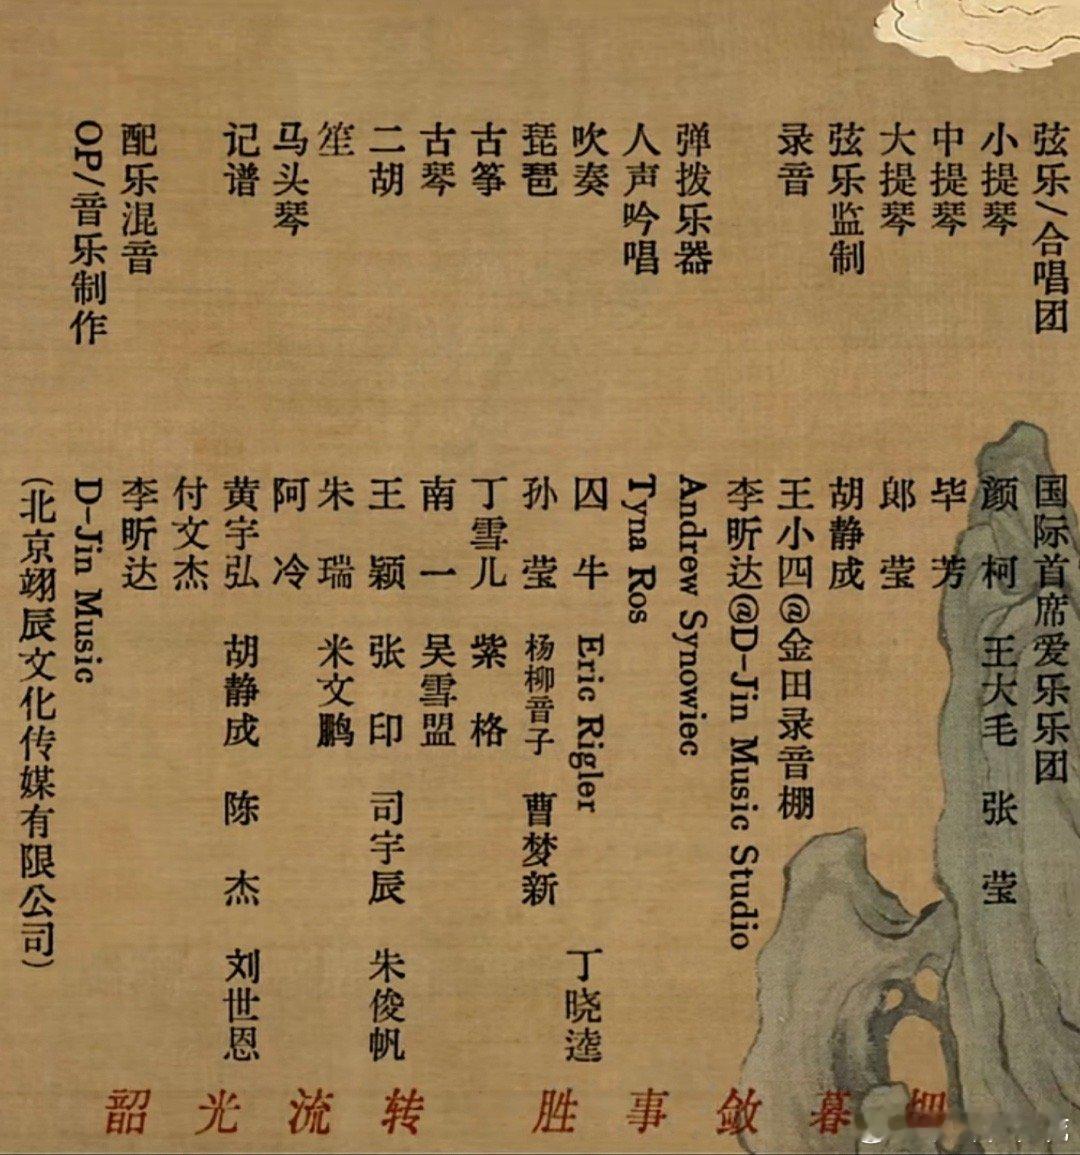 弦乐/合唱团 国际首席爱乐乐团
小提琴 颜柯 王大毛 张莹
中提琴 毕芳
大提琴 郎莹
弦乐监制 胡静成
录音 王小四@金田录音棚
李昕达@D-Jin Music Studio
弹拨乐器 Andrew Synowiec
人声吟唱 Tyna Ros
吹奏 囚牛 Eric Rigler 丁晓逵
琵琶 孙莹 杨柳音子 曹梦新
古筝 丁雪儿 紫格
古琴 南一 吴雪盟
二胡 王颖 张印 司宇辰 朱俊帆
笙 朱瑞 米文鹏
马头琴 阿冷
记谱 黄宇弘 胡静成 陈杰 刘世恩
付文杰
配乐混音 李昕达
OP/音乐制作 D-Jin Music
(北京翊辰文化传媒有限公司)
韶光流转 胜事敛暮